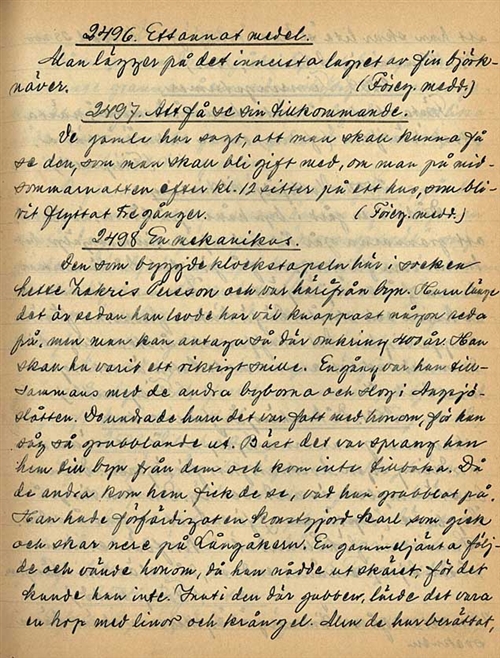 2496. Ett annat medel.
Man lägger på det innersta lagret av fin björk-
näver. (Föreg. medd.)
2497. Att få se sin tillkommande.
De gamla har sagt, att man skall kunna få
se den, som man skall bli gift med, om man på mid-
sommarnatten efter kl. 12 sitter på ett hus, som bli-
vit flyttat tre gånger. (Föreg. medd.)
2498 En mekanikus.
Den som byggde klockstapeln här i socken
hette Zakris Persson och var härifrån byn. Huru länge
det är sedan han levde har väl knappast någon reda
på, men man kan antaga så där omkring 400 år. Han
skall ha varit ett riktigt snille. En gång var han till-
sammans med de andra byborna och slog i Angsjö-
slåtten. Do undrade huru det var fatt med honom, för han
såg så grubblande ut. Bäst det var sprang han
hem till byn från dem och kom inte tillbaka. Då
de andra kom hem fick de se, vad han grubblat på.
Han hade förfärdigat en konstgjord karl som gick
och skar nere på Långåkern. En gammeljänta följ-
de och vände honom, då han nådde ut skäret, för det
kunde han inte. Inuti den där gubben, lärde det vara
en hop med linor och krångel. Men de har berättat,